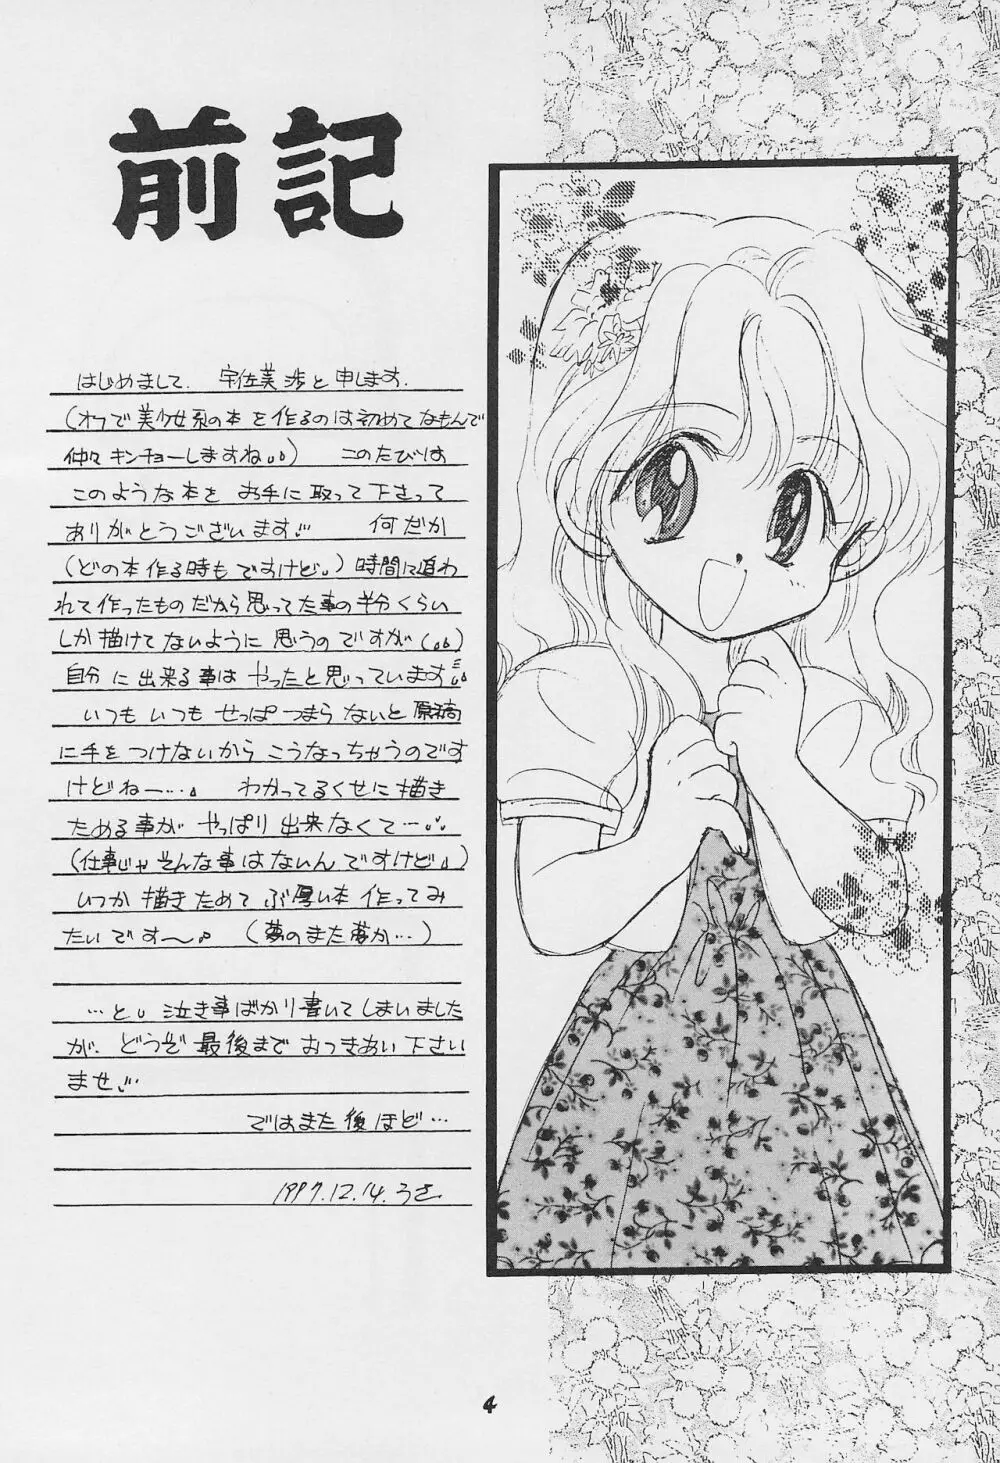 前記
はじめまして. 宇佐美渉と申します.
(オフで美少女系の本を作るのは初めてなもんで
仲々キンチョーしますね。。) このたびは
このような本を お手に取って下さって
ありがとうございます!! 何だか
(どの本作る時もですけど。)時間に追わ
れて作ったものだから思ってた事の半分くらい
しか描けてないように思うのですが(。。)
自分に出来る事はやったと思っています
いつもいつもせっぱつまらないと原稿
に手をつけないからこうなっちゃうのです
けどねー…。 わかってるくせに描き
ためる事がやっぱり出来なくて…
(仕事じゃそんな事はないんですけど。)
いつか描きためてぶ厚い本作ってみ
たいです〜。 (夢のまた夢か…)
…と。泣き事ばかり書いてしまいました
が、どうぞ最後までおつきあい下さい
ませ
ではまた後ほど…
1997.12.14.うさ
4